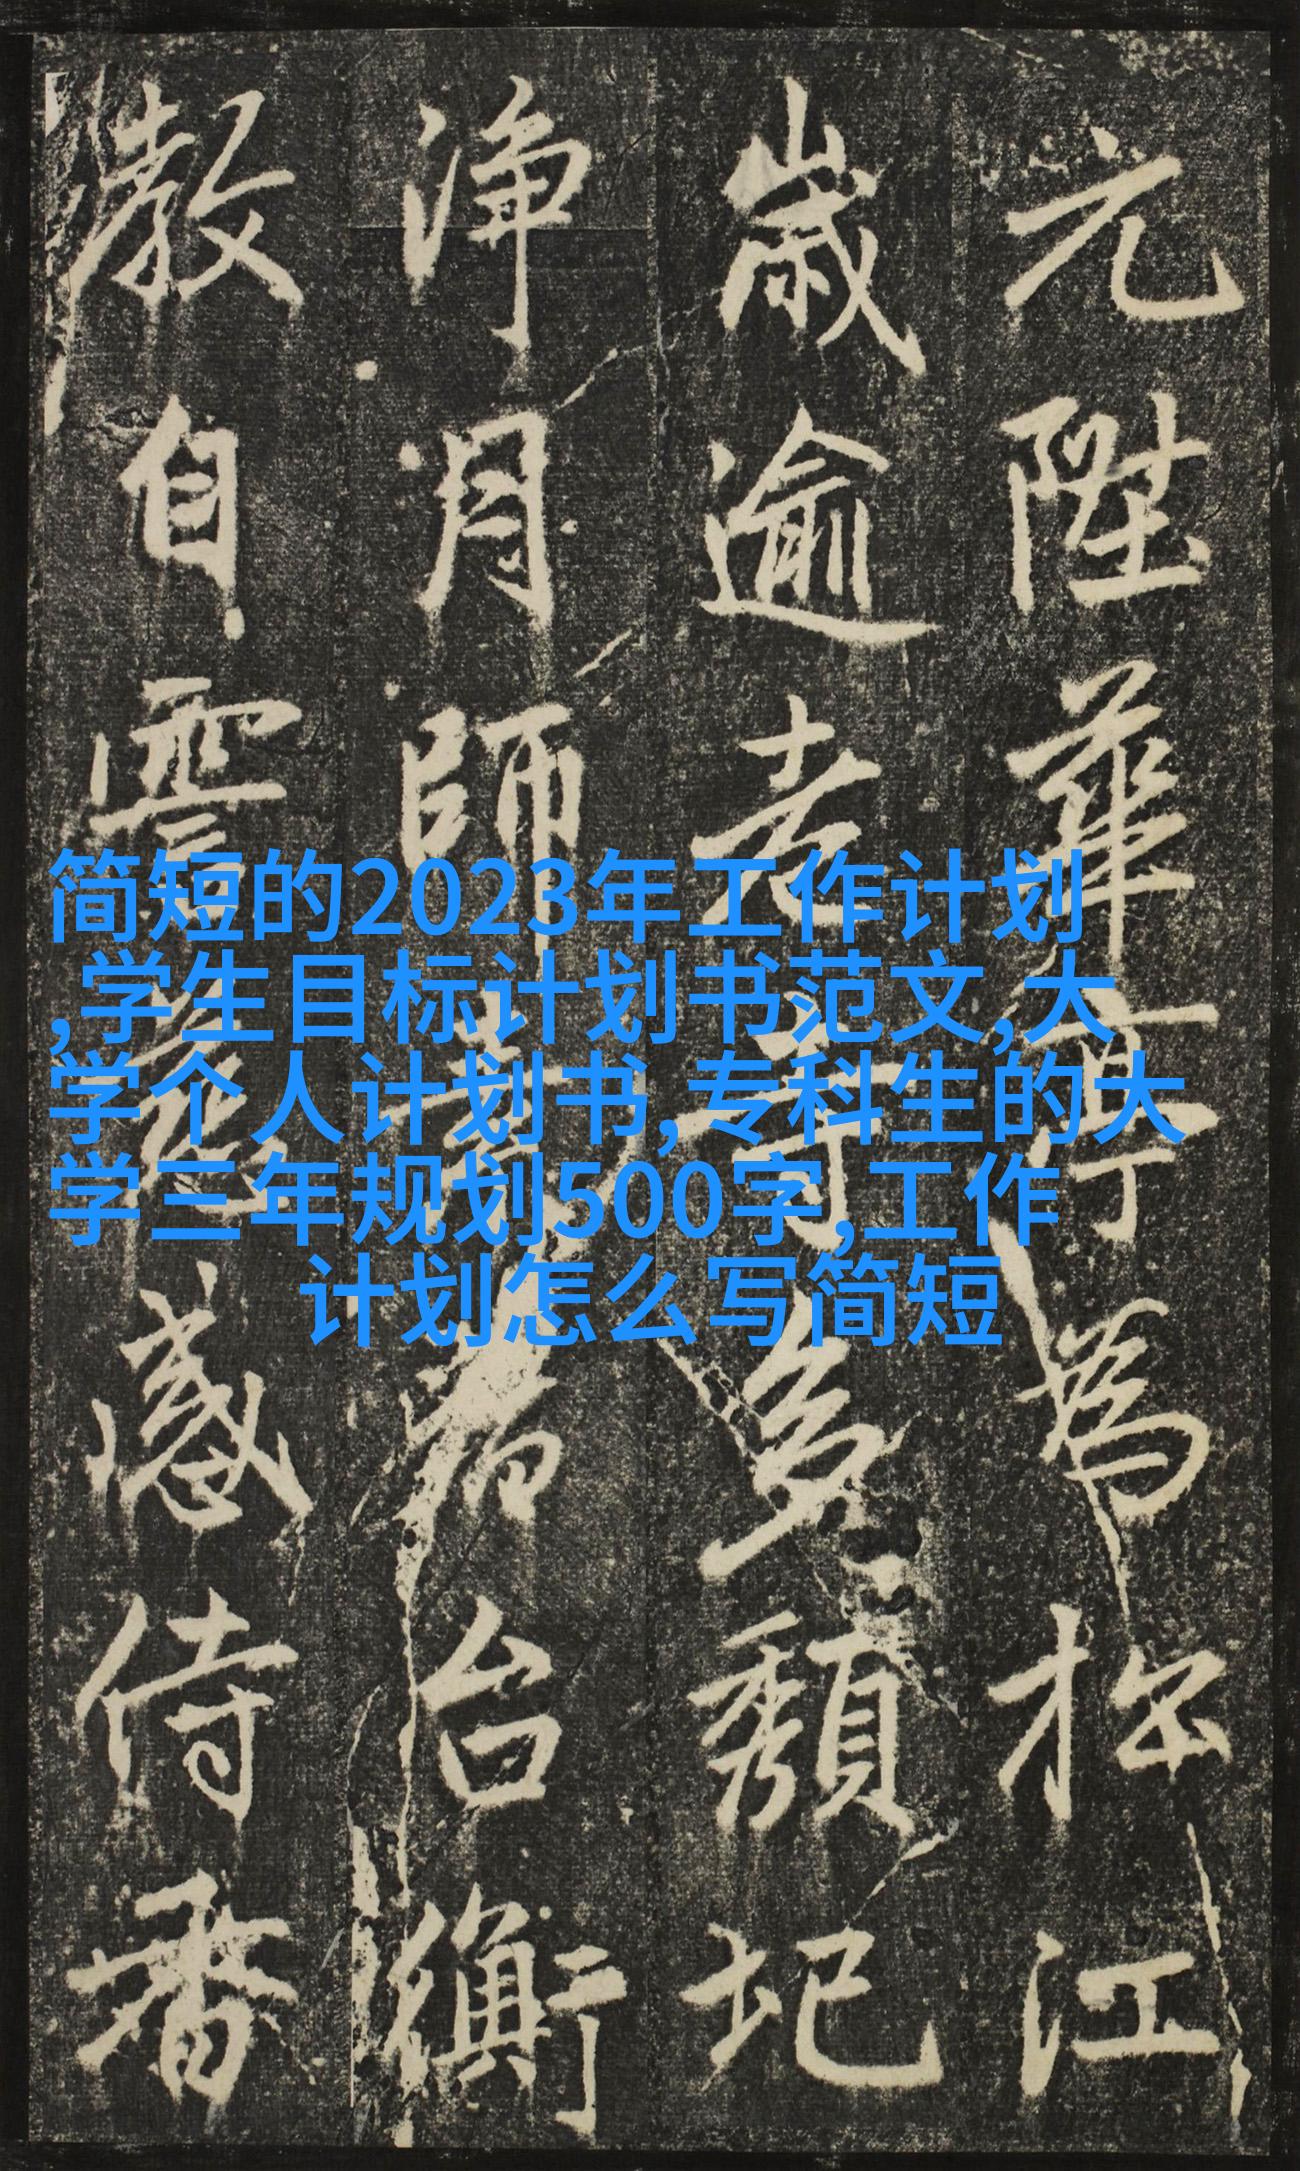 简短的2023年工作计划
,学生目标计划书范文,大
学个人计划书,专科生的大
学三年规划500字,工作
计划怎么写简短
元陞華亭為松江
歲逾老寺多頹圮
淨月師台衡
教自感侍香